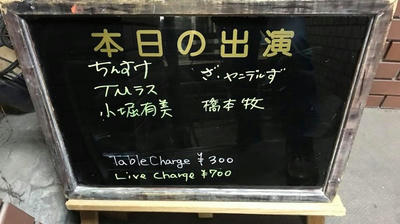 本日の出演
ちんすけ
ざ・ヤニデルず
TMラス
小堀有美
橋本 牧
Table Charge ¥300
Live Charge ¥700